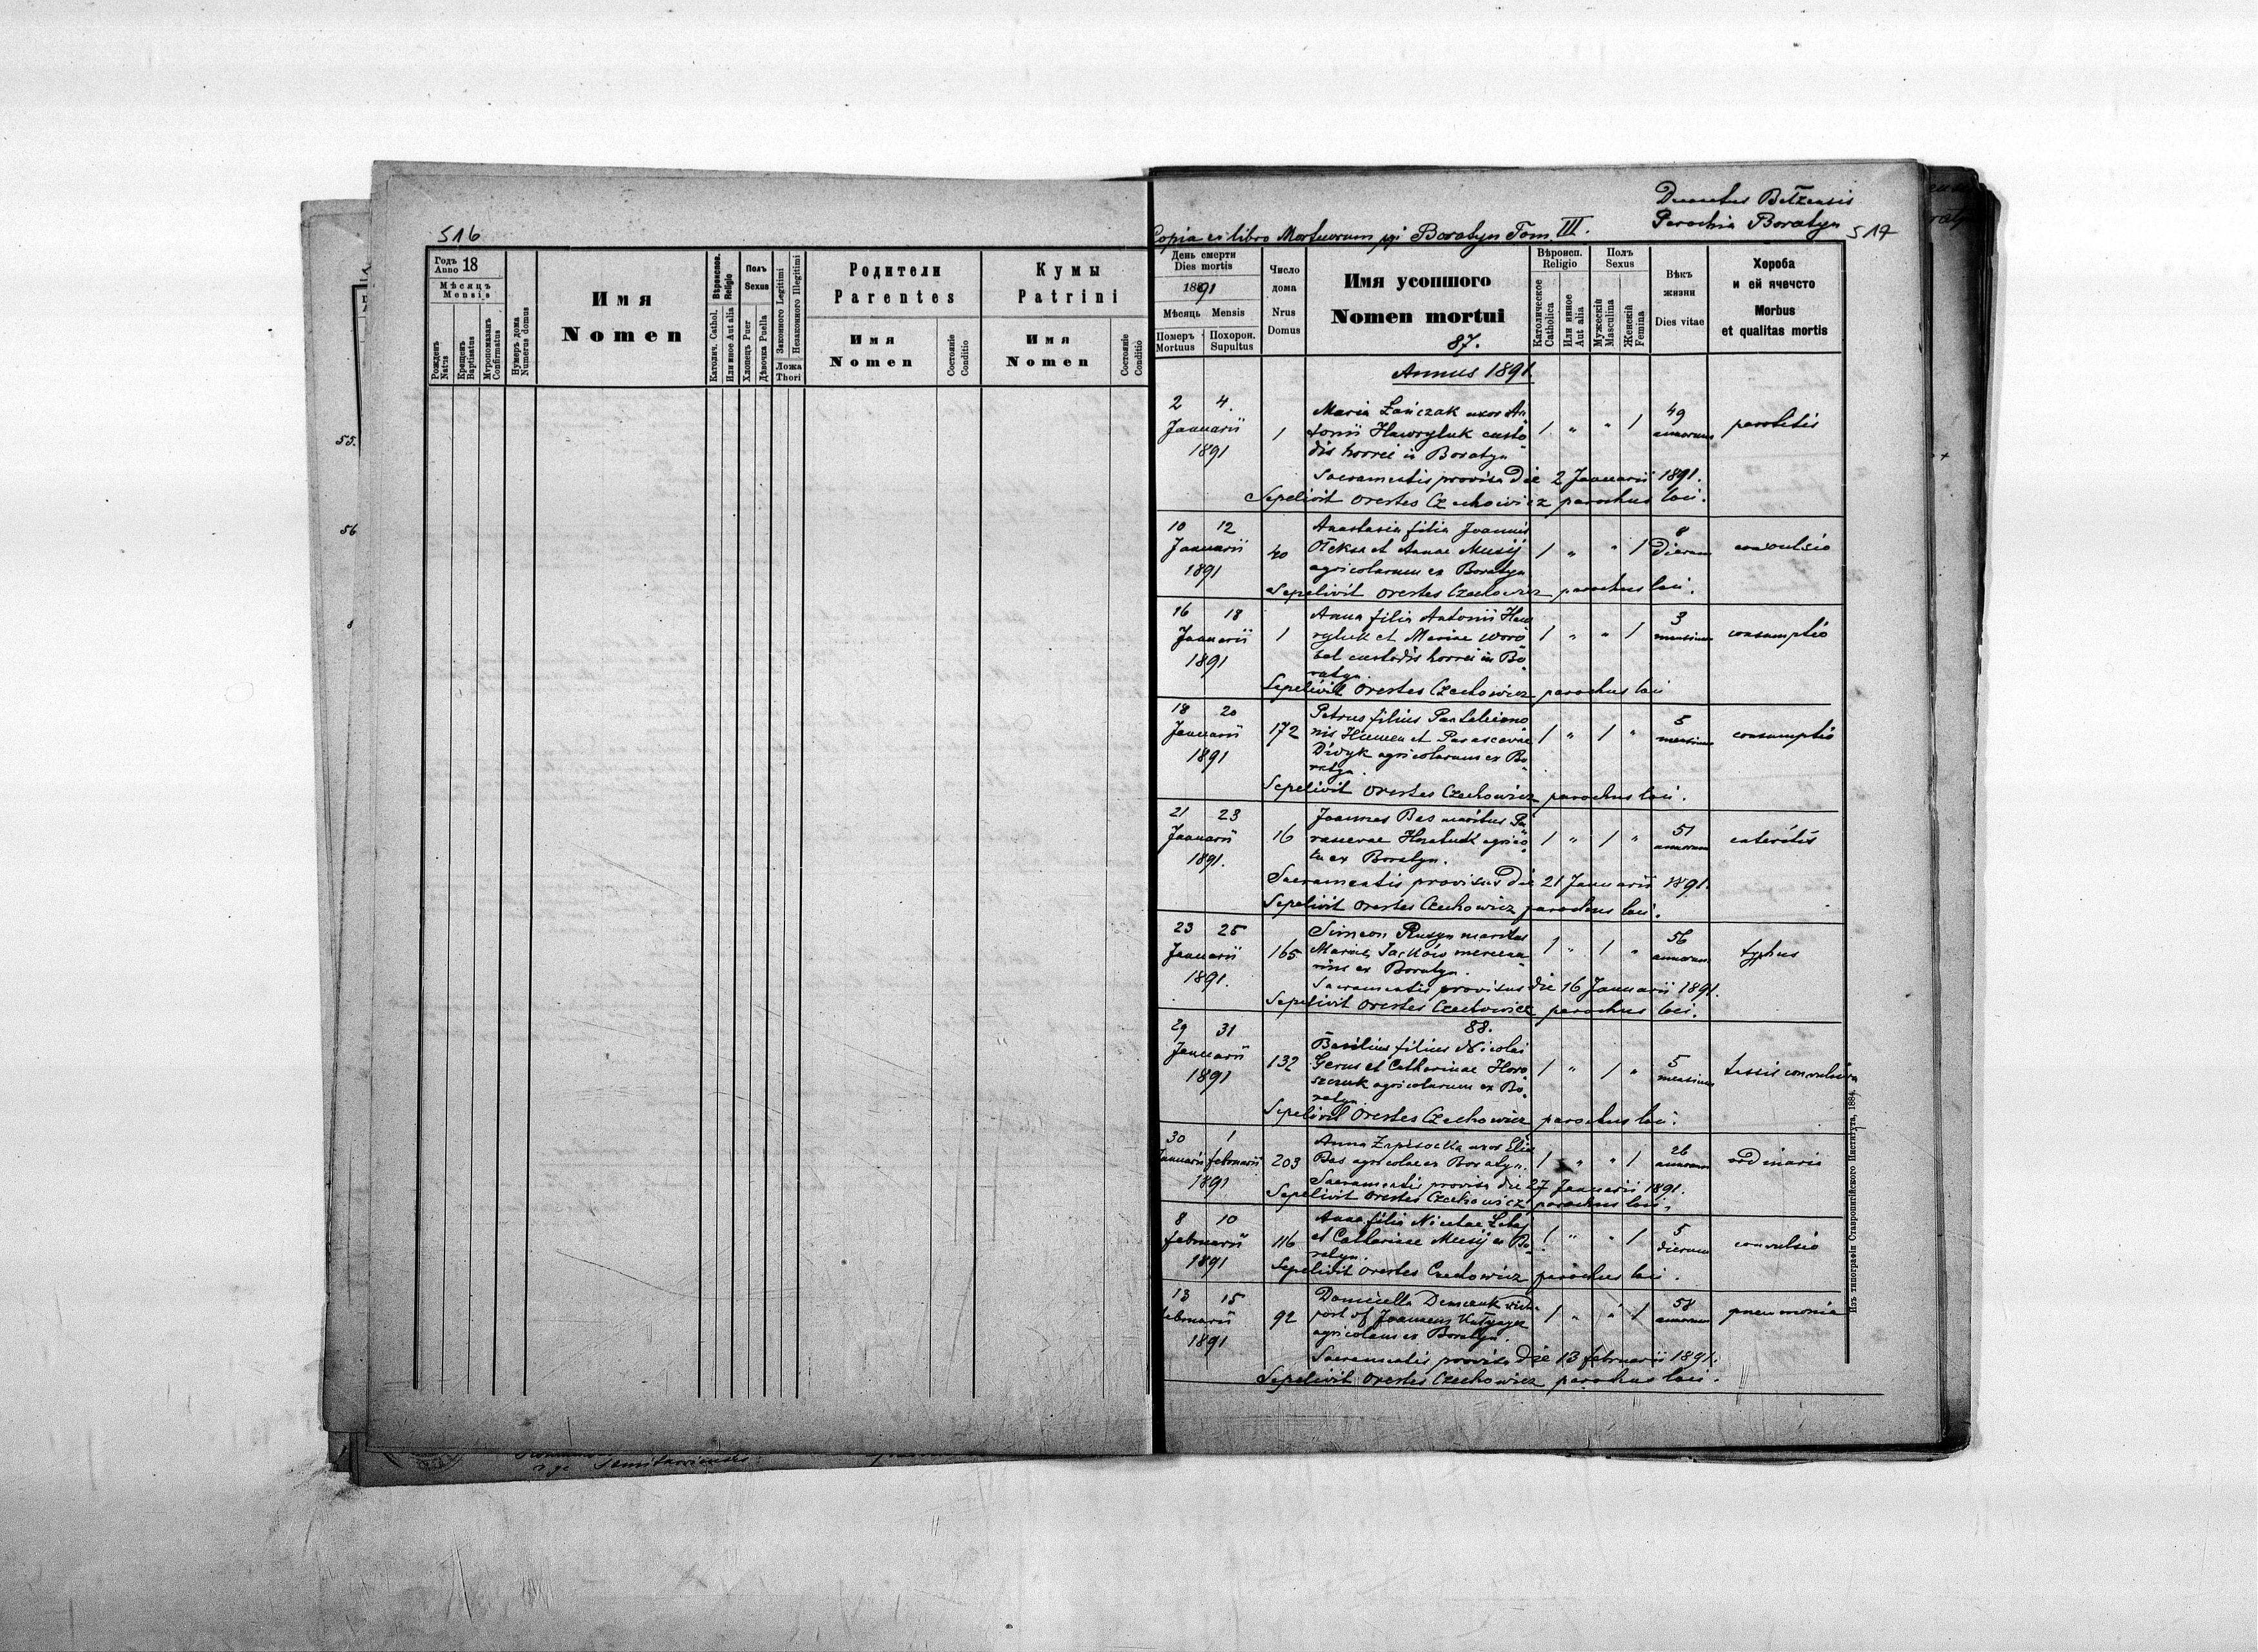 516
Годъ
Anno 18
Мѣсяцъ
Mensis
Рожденъ
Natus
Крещенъ
Baptisatus
Мѵропомазанъ
Confirmatus
Нумеръ дома
Numerus domus
Имя
Nomen
Вѣроиспов.
Religio
Католич. Cathol.
Или иное Aut alia
Полъ
Sexus
Хлопецъ Puer
Дѣвочка Puella
Законного Legitimi
Незаконного Illegitimi
Ложа
Thori
Родители
Parentes
Имя
Nomen
Состояніе
Conditio
Кумы
Patrini
Имя
Nomen
Состояніе
Conditio
55.
56
8
Decanatus Bełzensis
Parochia Boratyn
517
Copia ex libro Mortuorum pgi Boratyn Tom. III.
День смерти
Dies mortis
1891
Мѣсяць Mensis
Померъ
Mortuus
Похорон.
Supultus
Число
дома
Nrus
Domus
Имя усопшого
Nomen mortui
87.
Вѣроисп.
Religio
Католическое
Catholica
Или инное
Aut alia
Полъ
Sexus
Мужескій
Masculina
Женскій
Femina
Вѣкъ
жизни
Dies vitae
Хороба
и ей ячество
Morbus
et qualitas mortis
Annus 1891.
2 4. Maria Łańczak uxor An 49
Januarii 1 tonii Hawryluk custo 1 " " 1 annorum parotitis
1891 dis horrei in Boratyn
Sacramentis provisa Die 2 Januarii 1891.
Sepelivit Orestes Czechowicz parochus loci.
10 12 Anastasia filia Joannis 8
Januarii 40 et Annae Musij 1 " " 1 Dierum convulsio
1891 agricolarum ex Boratyn
Sepelivit Orestes Czechowicz parochus loci.
16 18 Anna filia Antonii Haw 3
Januarii 1 ryluk et Mariae Woro 1 " " 1 mensium consumptio
1891 bel custodis horrei in Bo
ratyn.
Sepelivit Orestes Czechowicz parochus loci
18 20 Petrus filius Panteleimo 5
Januarii 172 nis et Parasceviae 1 " 1 " mensium consumptio
1891 Diwyk agricolarum ex Bo
ratyn.
Sepelivit Orestes Czechowicz parochus loci.
21 23 Joannes Bas maritus Pa 51
Januarii 16 agrico 1 " 1 " annorum enteritis
1891. la ex Boratyn.
Sacramentis provisus Die 21 Januarii 1891.
Sepelivit Orestes Czechowicz parochus loci.
23 25 Simeon Rusyn maritus 56
Januarii 165 Mariae Jacków mercena 1 " 1 " annorum typhus
1891. rius ex Boratyn.
Sacramentis provisus die 16 Januarii 1891.
Sepelivit Orestes Czechowicz parochus loci.
88.
29 31 Basilius filius Nicolai 5
Januarii 132 Gerus et Catharinae Horo 1 " 1 " mensium tussis convulsiva
1891 szczuk agricolarum ex Bo
ratyn.
Sepelivit Orestes Czechowicz parochus loci.
30 1 Anna uxor Eliae 26
Januarii februarii 203 Bas agricolae ex Boratyn. 1 " " 1 annorum ordinaria
1891 Sacramentis provisa die 27 Januarii 1891.
Sepelivit Orestes Czechowicz parochus loci.
8 10 Anna filia Nicetae 5
februarii 116 et Catharinae Musij ex Bo 1 " " 1 dierum convulsio
1891 ratyn.
Sepelivit Orestes Czechowicz parochus loci.
13 15 Domicella Demczuk 58
februarii 92 agricolam ex Boratyn. 1 " " 1 annorum pneumonia
1891
Sacramentis provisa Die 13 februarii 1891.
Sepelivit Orestes Czechowicz parochus loci.
Изъ типографіи Ставропигійского Института, 1884.